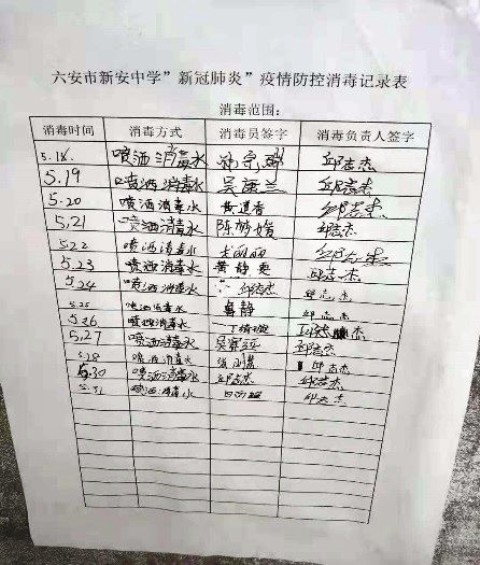 六安市新安中学"新冠肺炎"疫情防控消毒记录表
消毒范围：
消毒时间 消毒方式 消毒员签字 消毒负责人签字
5.18. 喷洒消毒水 邱志杰
5.19 喷洒消毒水 吴 兰 邱志杰
5.20 喷洒消毒水 黄道香 邱志杰
5.21 喷洒消毒水 陈 媛 邱志杰
5.22 喷洒消毒水
5.23 喷洒消毒水 黄静 邱志杰
5.24 喷洒消毒水 邱志杰 邱志杰
5.25 喷洒消毒水 静 邱志杰
5.26 喷洒消毒水 丁 杰
5.27 喷洒消毒水 吴 邱志杰
5.28 喷洒消毒水 邱志杰
5.30 喷洒消毒水 邱志杰 邱志杰
5.31 喷洒消毒水 邱志杰